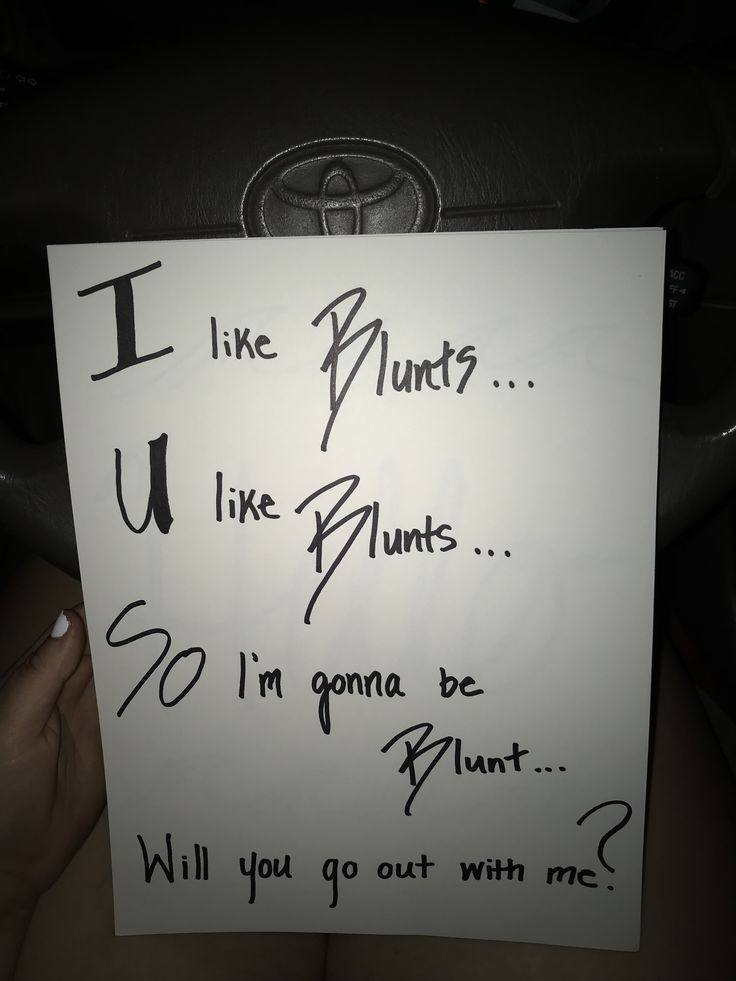 I like Blunts...
U like Blunts...
So I'm gonna be
Blunt...
Will you go out with me?
ACC